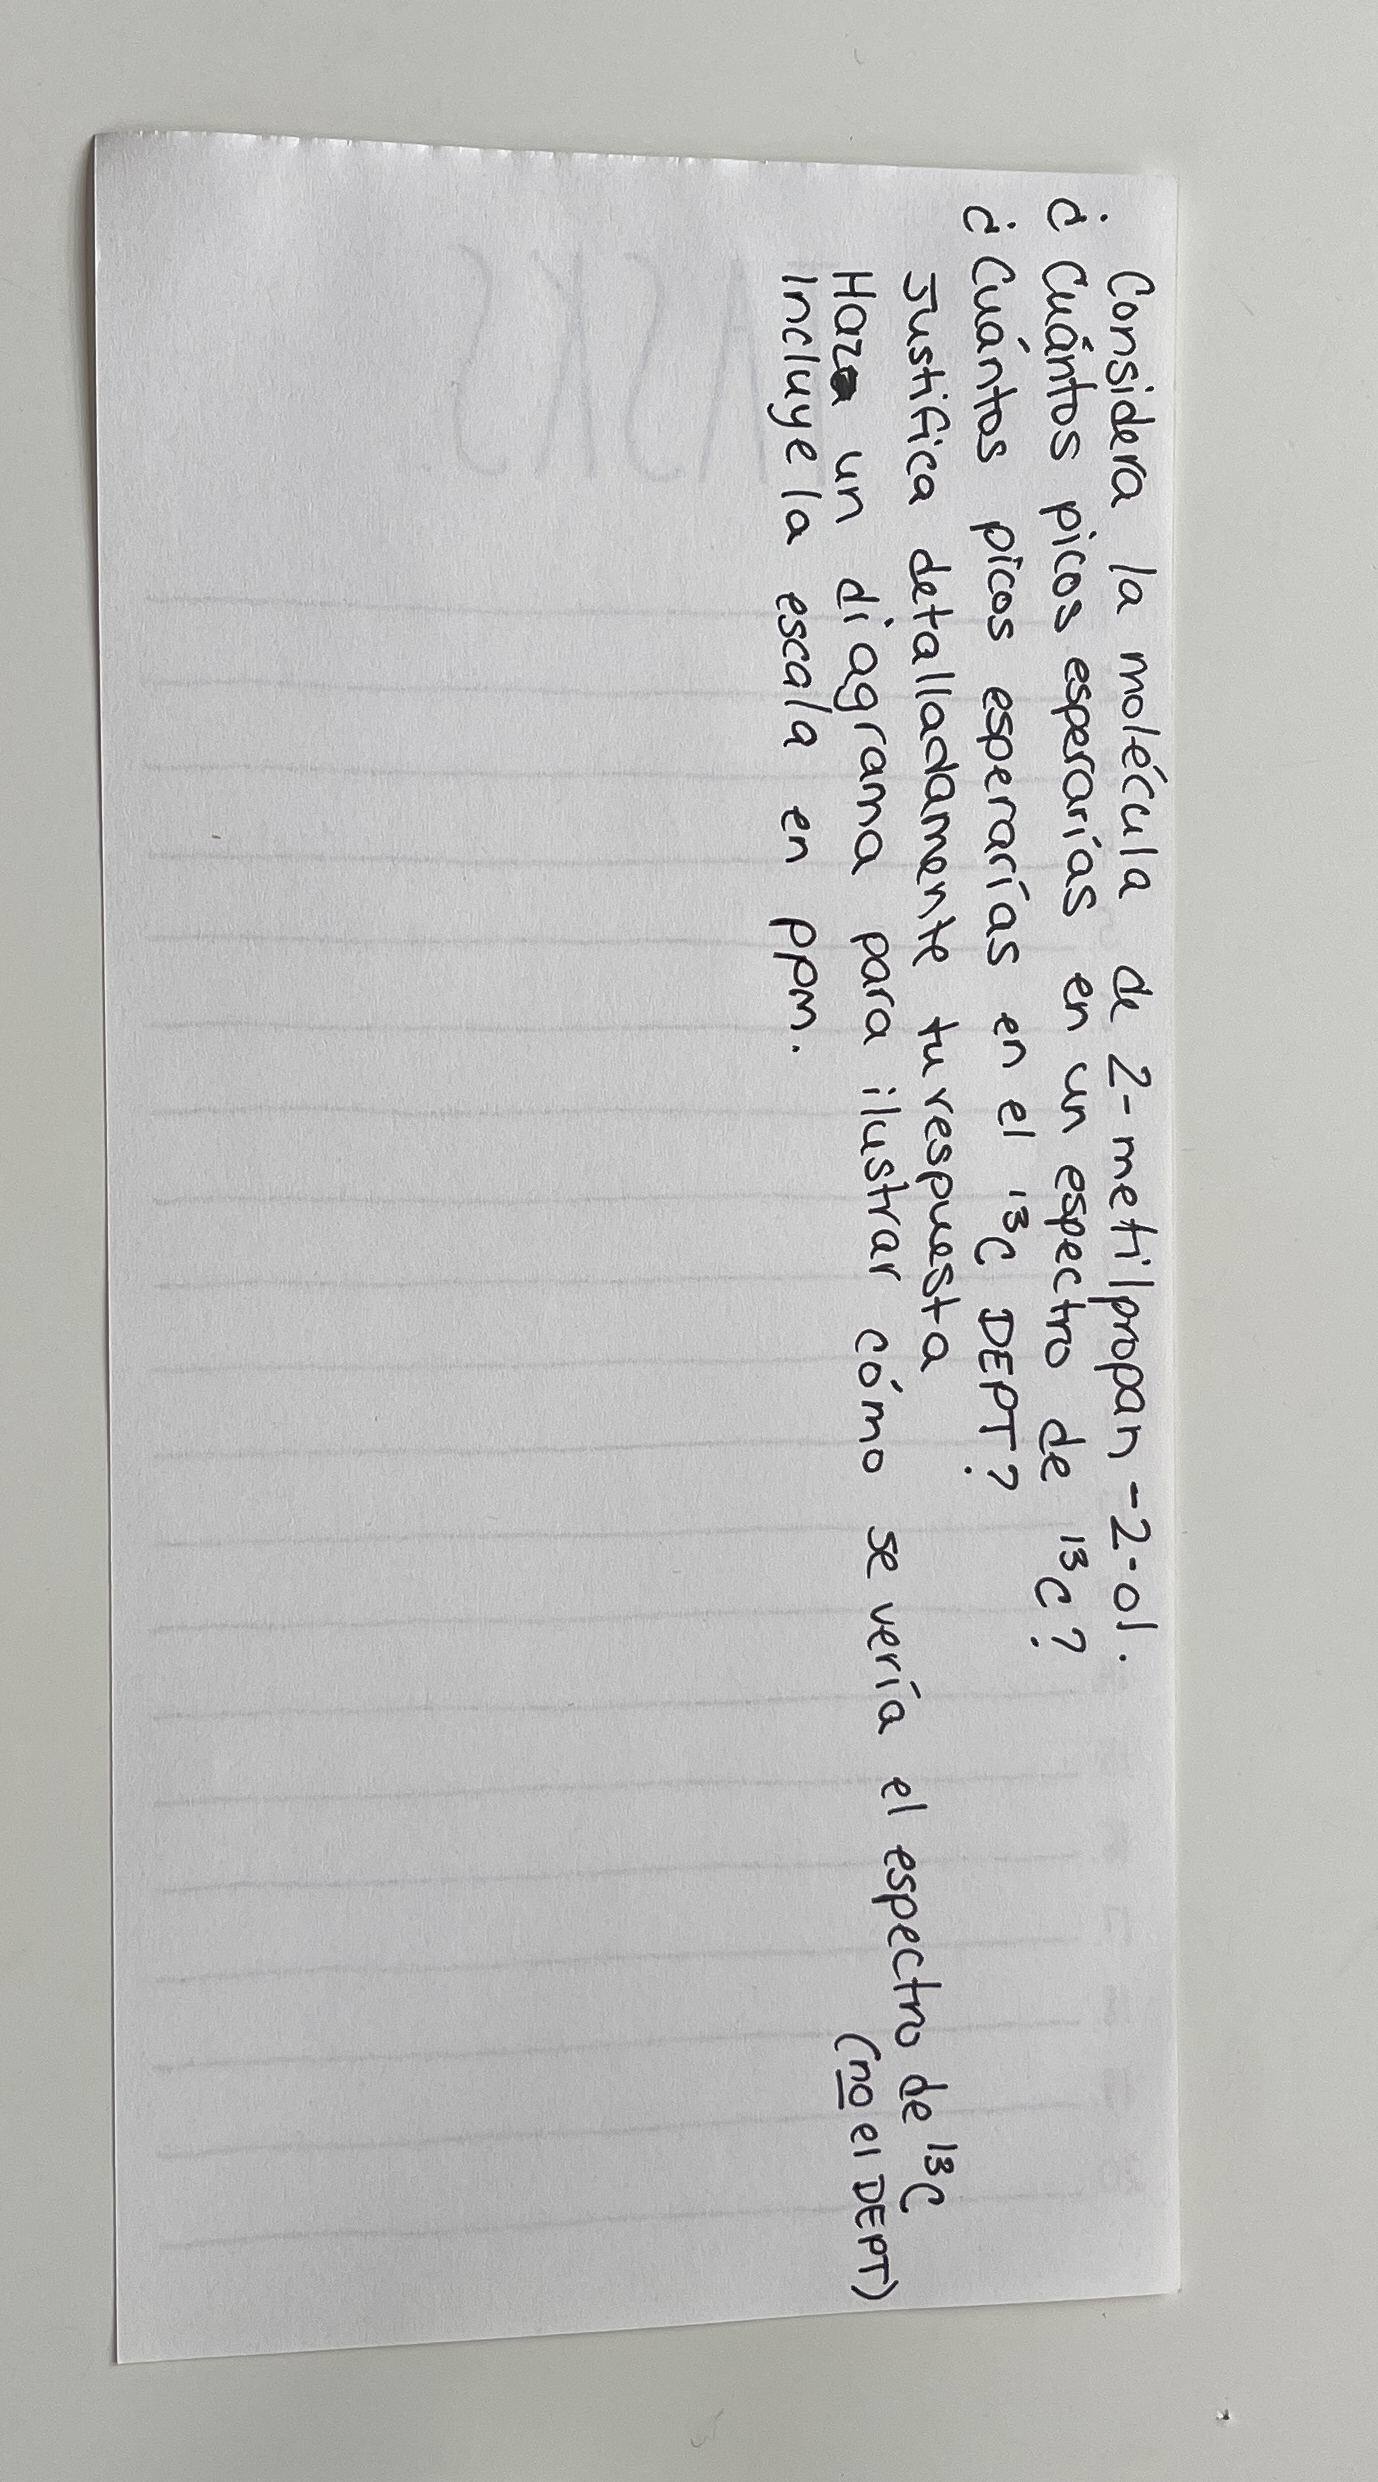 Considera la molécula de 2-metilpropan-2-ol.
¿Cuántos picos esperarías en un espectro de ¹³C?
¿Cuántos picos esperarías en el ¹³C DEPT?
Justifica detalladamente tu respuesta
Haz un diagrama para ilustrar cómo se vería el espectro de ¹³C
(no el DEPT)
Incluye la escala en ppm.
TASKS